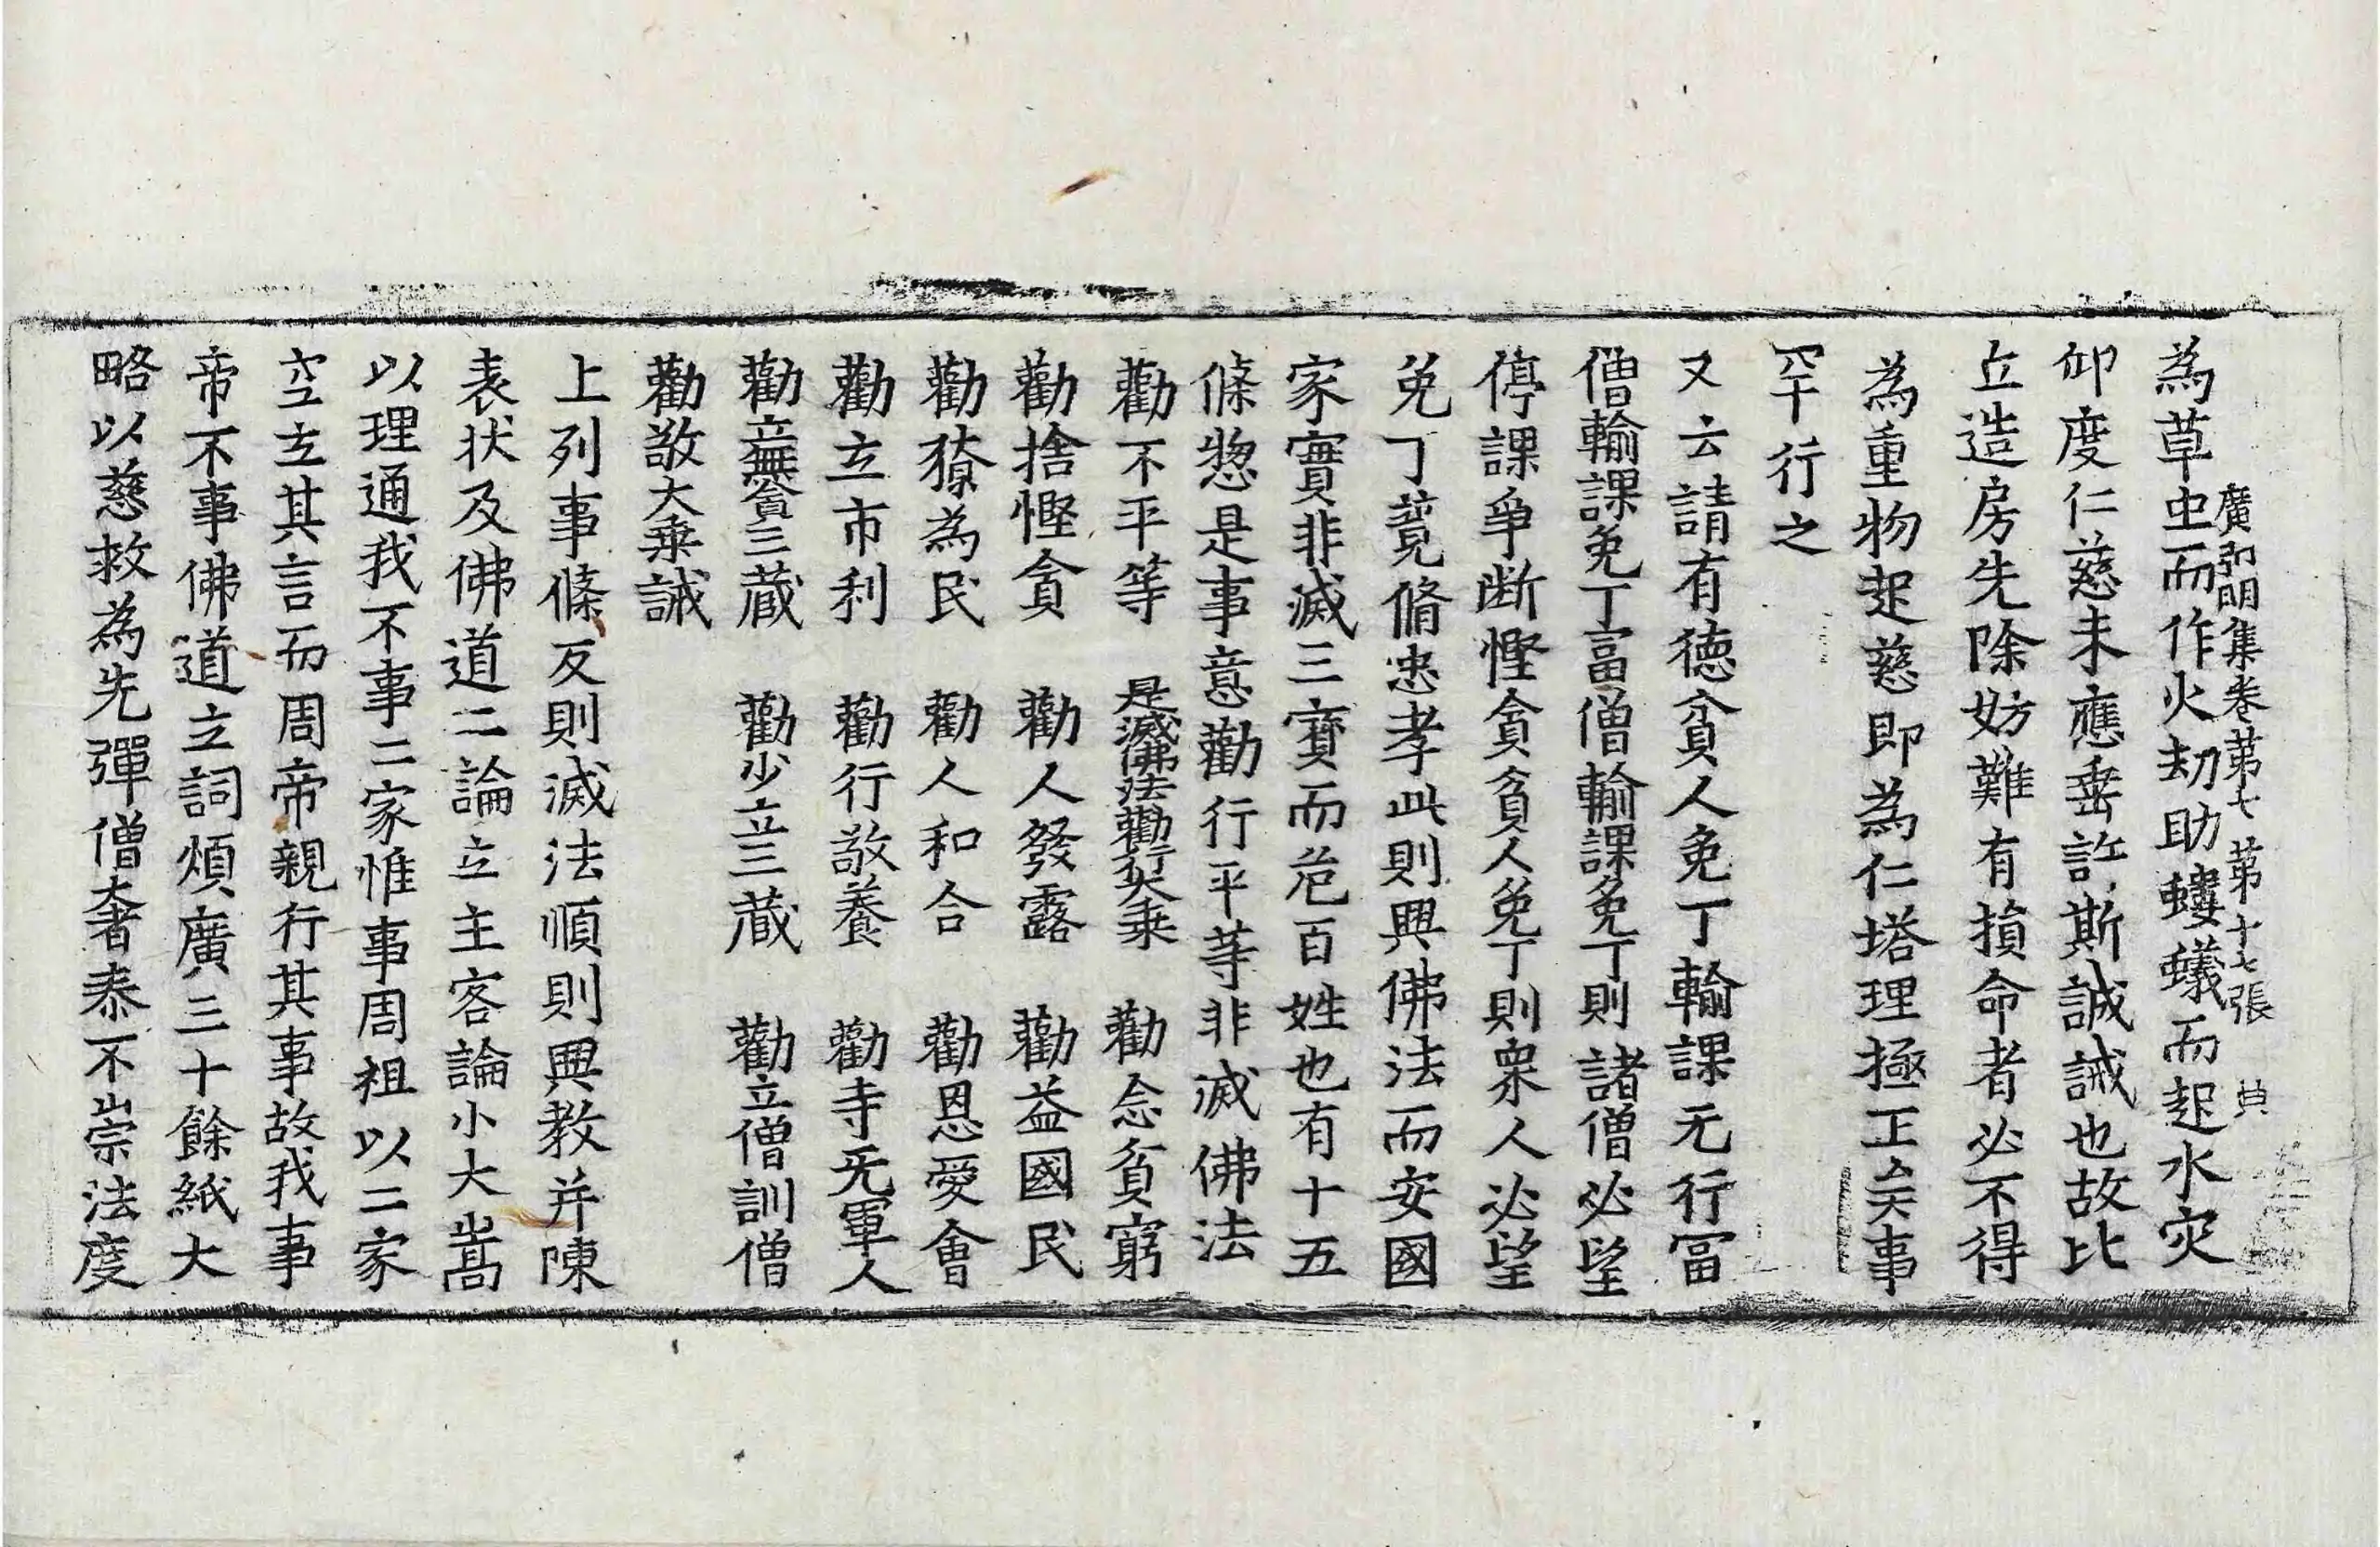 廣弘明集卷第七 第十七張 典
為草虫而作火劫助螻蟻而起水灾
仰度仁慈未應垂許斯誠誡也故比
丘造房先除妨難有損命者必不得
為重物起慈即為仁塔理極正矣事
罕行之
又云請有徳貧人免丁輸課无行冨
僧輸課免丁富僧輸課免丁則諸僧必望
停課爭断慳貪貧人免丁則衆人必望
免丁競脩忠孝此則興佛法而安國
家實非滅三寶而危百姓也有十五
條惣是事意勸行平等非滅佛法
勸不平等 是滅佛法勸行大乗 勸念貧窮
勸捨慳貪 勸人發露 勸益國民
勸獠為民 勸人和合 勸恩愛會
勸立市利 勸行敬養 勸寺无軍人
勸立無貪三蔵 勸少立三蔵 勸立僧訓僧
勸敬大乗誡
上列事條反則滅法順則興教并陳
表状及佛道二論立主客論小大嵩
以理通我不事二家惟事周祖以二家
空立其言而周帝親行其事故我事
帝不事佛道立詞煩廣三十餘紙大
略以慈救為先彈僧奢泰不崇法度